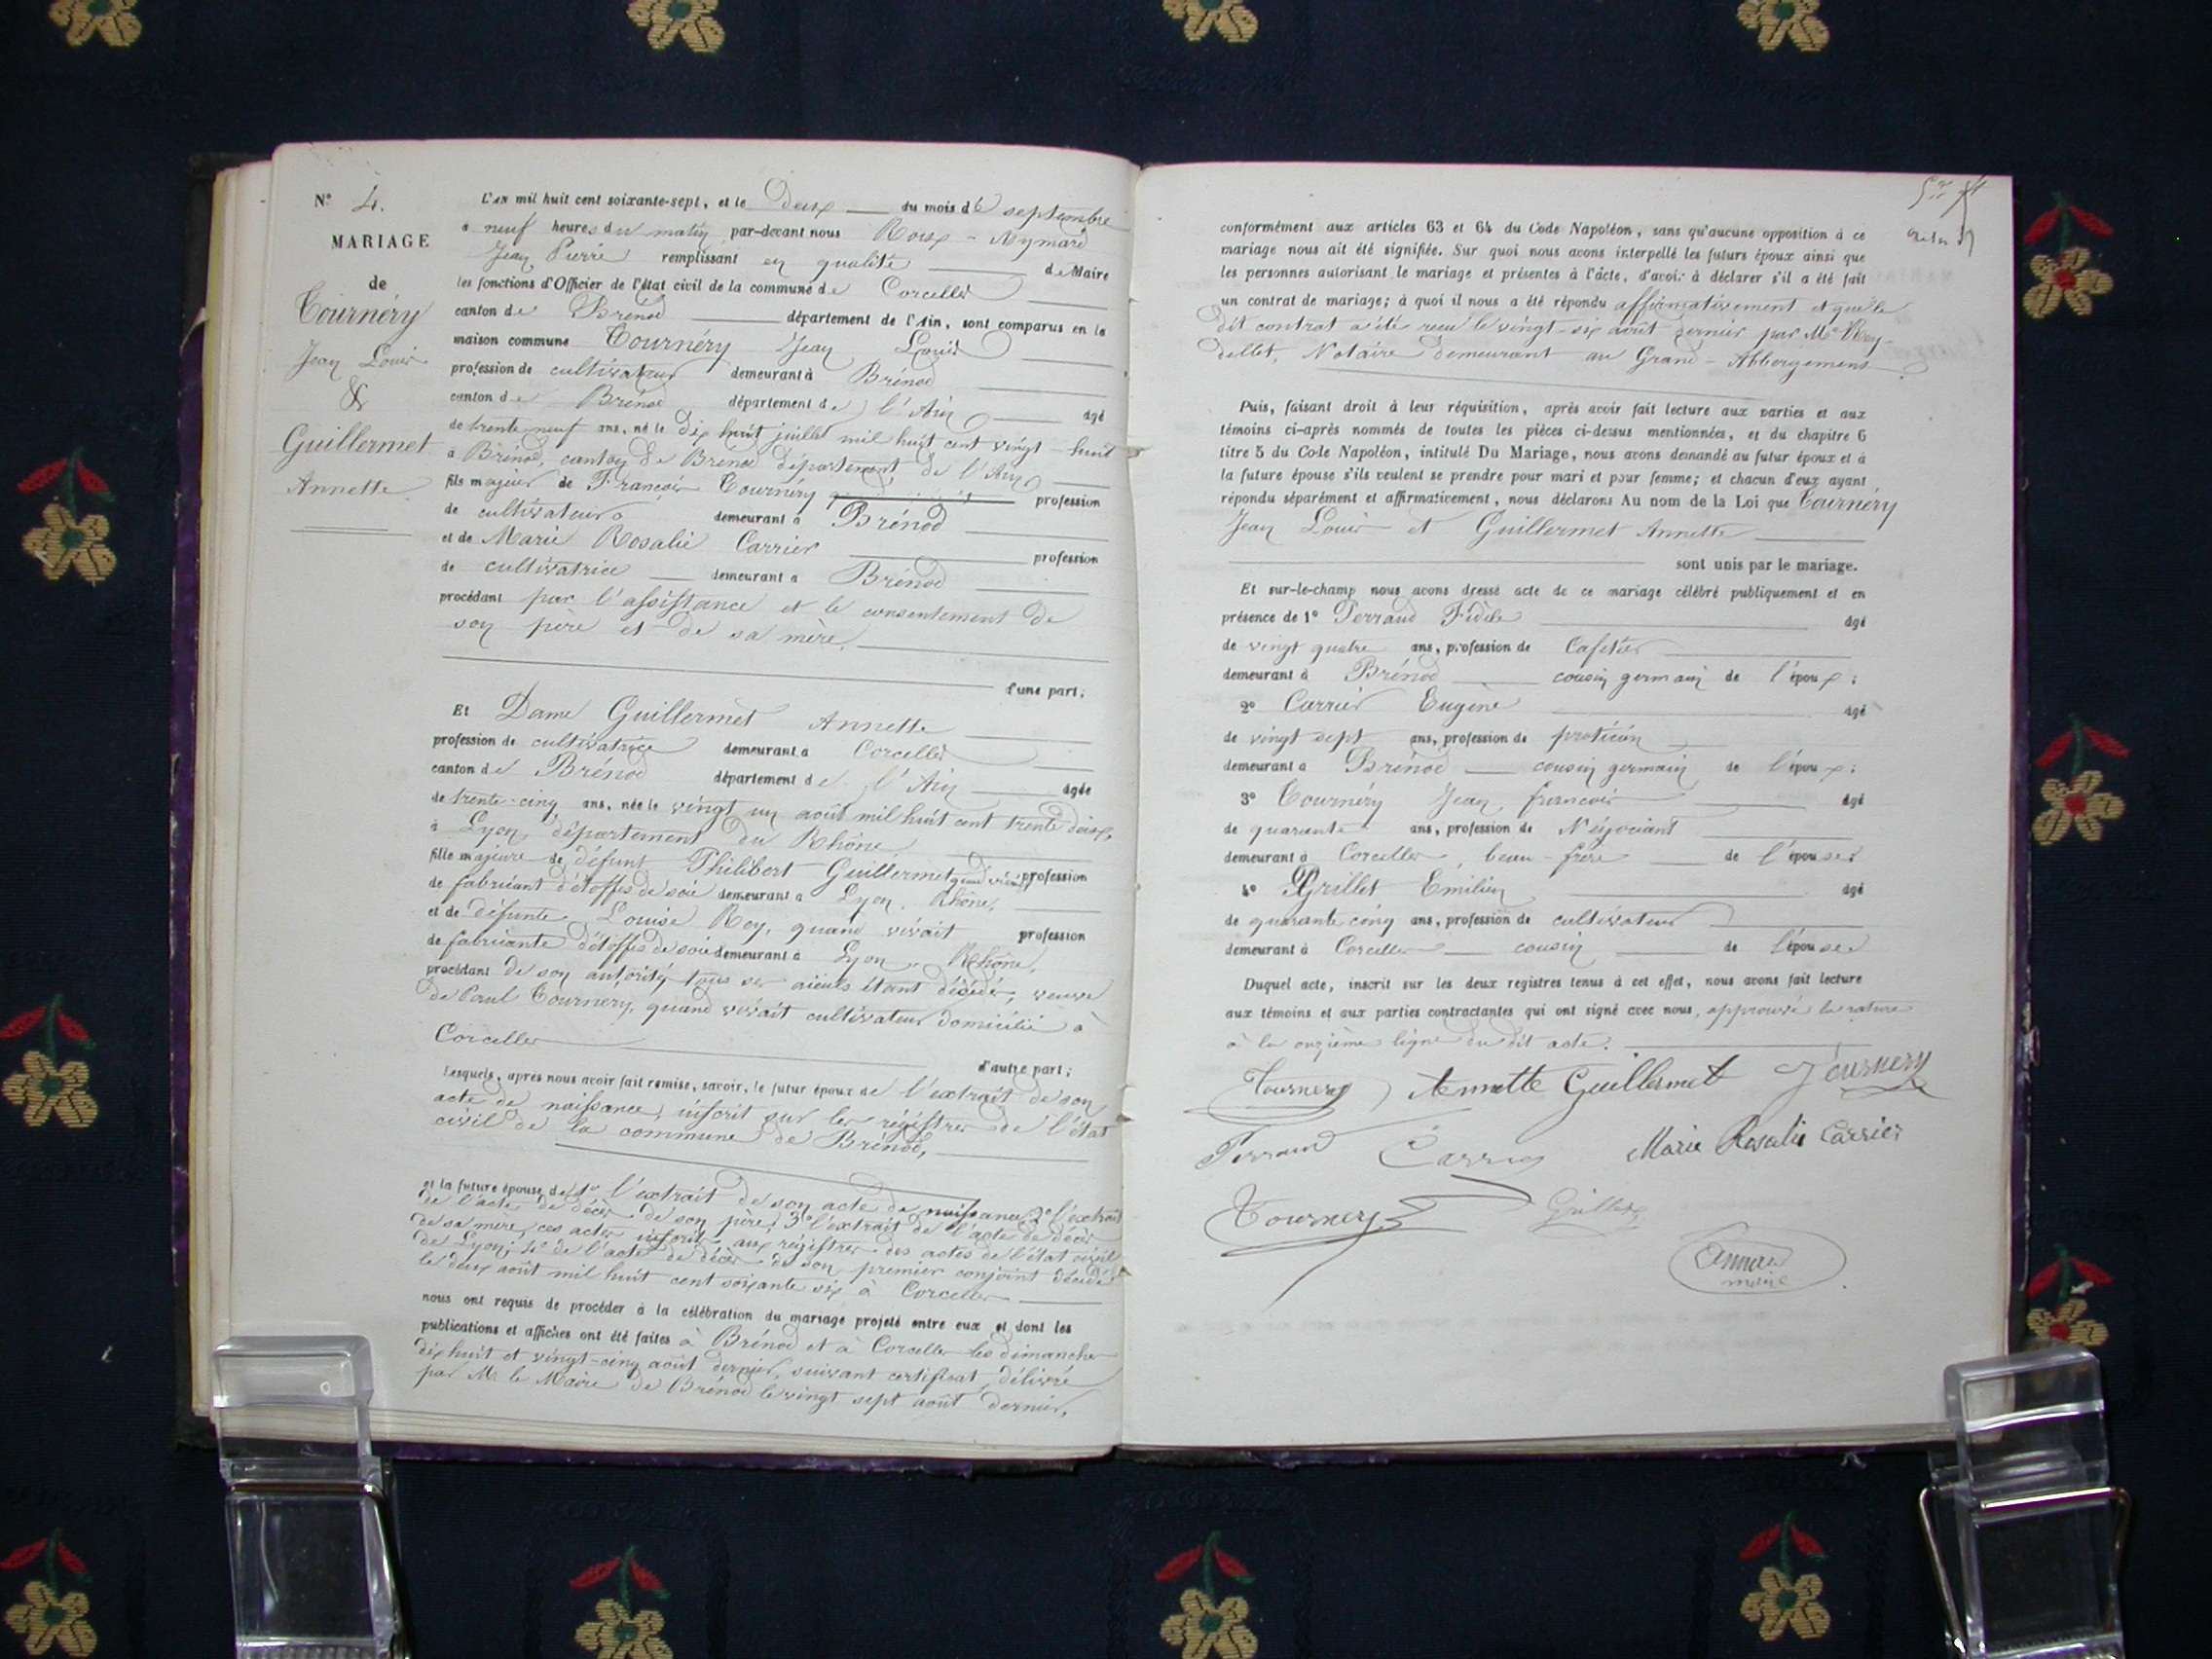 N° 4.
MARIAGE
de
Tournéry
Jean Louis
&
Guillermet
Annette
L'an mil huit cent soixante-sept, et le Deux du mois de septembre
à neuf heures du matin par-devant nous Roux-Aymard
Jean Pierre remplissant en qualité de Maire
les fonctions d'Officier de l'état civil de la commune de Corcelles
canton de Brénod département de l'Ain, sont comparus en la
maison commune Tournéry Jean Louis
profession de cultivateur demeurant à Brénod
canton de Brénod département de l'Ain âgé
de trente-neuf ans, né le dix huit juillet mil huit cent vingt-huit
à Brénod, canton de Brénod département de l'Ain
fils majeur de François Tournéry profession
de cultivateur demeurant à Brénod
et de Marie Rosalie Carrier profession
de cultivatrice demeurant à Brénod
procédant par l'assistance et le consentement de
son père et de sa mère.
d'une part;
Et Dame Guillermet Annette
profession de cultivatrice demeurant à Corcelles
canton de Brénod département de l'Ain âgée
de trente-cinq ans, née le vingt un août mil huit cent trente deux,
à Lyon, département du Rhône
fille majeure de défunt Philibert Guillermet quand vivait profession
de fabricant d'étoffes de soie demeurant à Lyon, Rhône,
et de défunte Louise Rey, quand vivait profession
de fabricante d'étoffes de soie demeurant à Lyon, Rhône,
procédant de son autorité, tous ses aïeuls étant décédés, veuve
de Paul Tournéry, quand vivait cultivateur domicilié à
Corcelles
d'autre part;
Lesquels, après nous avoir fait remise, savoir, le futur époux de l'extrait de son
acte de naissance, inscrit sur les régistres de l'état
civil de la commune de Brénod,
et la future épouse, de 1° l'extrait de son acte de naissance, 2° l'extrait
de l'acte de décès de son père, 3° l'extrait de l'acte de décès
de sa mère, ces actes inscrits aux régistres des actes de l'état civil
de Lyon; 4° de l'acte de décès de son premier conjoint décédé
le deux août mil huit cent soixante six à Corcelles
nous ont requis de procéder à la célébration du mariage projeté entre eux et dont les
publications et affiches ont été faites à Brénod et à Corcelles les dimanches
dix huit et vingt-cinq août dernier, suivant certificat délivré
par M. le Maire de Brénod le vingt sept août dernier,
conformément aux articles 63 et 64 du Code Napoléon, sans qu'aucune opposition à ce
mariage nous ait été signifiée. Sur quoi nous avons interpellé les futurs époux ainsi que
les personnes autorisant le mariage et présentes à l'acte, d'avoir à déclarer s'il a été fait
un contrat de mariage; à quoi il nous a été répondu affirmativement et que le
dit contrat a été reçu le vingt-six août dernier par Me
Notaire demeurant au Grand-Abbergement
Puis, faisant droit à leur réquisition, après avoir fait lecture aux parties et aux
témoins ci-après nommés de toutes les pièces ci-dessus mentionnées, et du chapitre 6
titre 5 du Code Napoléon, intitulé Du Mariage, nous avons demandé au futur époux et à
la future épouse s'ils veulent se prendre pour mari et pour femme; et chacun d'eux ayant
répondu séparément et affirmativement, nous déclarons Au nom de la Loi que Tournéry
Jean Louis et Guillermet Annette
sont unis par le mariage.
Et sur-le-champ nous avons dressé acte de ce mariage célébré publiquement et en
présence de 1° Perraud Fidèle âgé
de vingt quatre ans, profession de Cafetier
demeurant à Brénod cousin germain de l'époux;
2° Carrier Eugène âgé
de vingt sept ans, profession de praticien
demeurant à Brénod cousin germain de l'époux;
3° Tournéry Jean françois âgé
de quarante ans, profession de Négociant
demeurant à Corcelles, beau-frère de l'épouse;
4° Grillet Emilien âgé
de quarante cinq ans, profession de cultivateur
demeurant à Corcelles cousin de l'épouse
Duquel acte, inscrit sur les deux registres tenus à cet effet, nous avons fait lecture
aux témoins et aux parties contractantes qui ont signé avec nous, approuvé la rature
à la onzième ligne du dit acte.
Tournery Annette Guillermet Tournery
Perraud Carrier Marie Rosalie Carrier
Tournery Grillet
maire